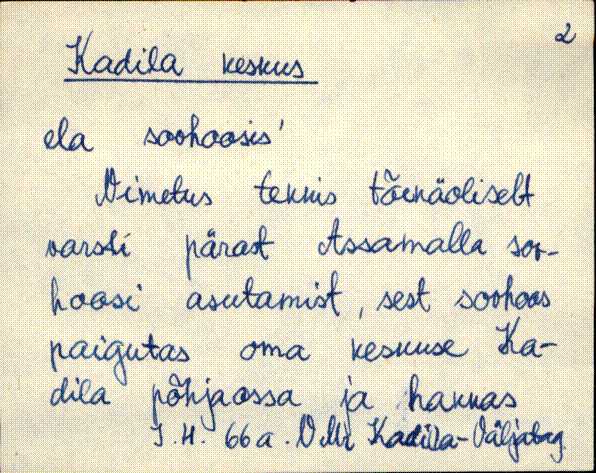 2
Kadila keskus
ela sovhoosis'
Nimetus tekkis tõenäoliselt
varsti pärast Assamalla sov-
hoosi asutamist, sest sovhoos
paigutas oma keskuse Ka-
dila põhjaossa ja hakkas
66a. VMr Kadila-Väljataga